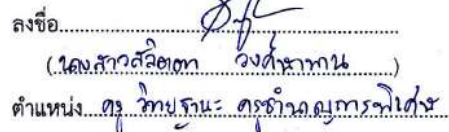 ลงชื่อ
(นางสาวสลิตตา วงศ์หาทาน)
ตำแหน่ง ครู วิทยฐานะ ครูชำนาญการพิเศษ